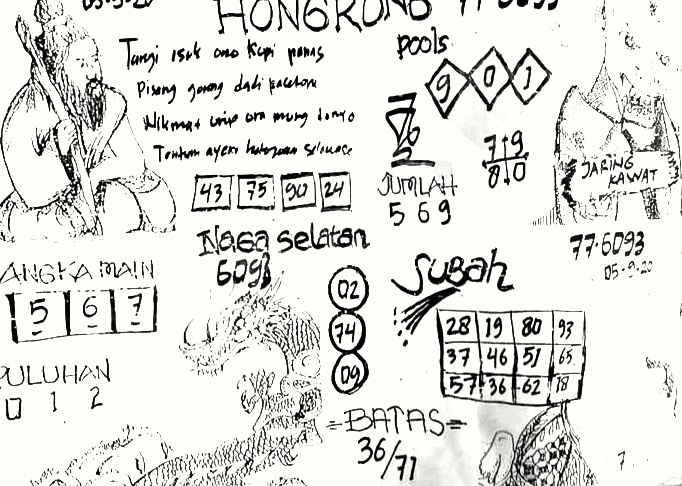 05-9-20
HONGKONG 77-6093
pools
Tangi isuk ono kopi panas
Pisang goreng dadi
Nikmat urip ora mung donyo
Tentrem ayem
9 0 1
7 9
8 0
JARING
KAWAT
43 75 90 24
JUMLAH
5 6 9
Naga Selatan
6093
77-6093
05-9-20
ANGKA MAIN
5 6 7
02
74
09
Subah
28 19 80 93
37 46 51 65
57 36 62 18
PULUHAN
0 1 2
=BATAS=
36/71
7